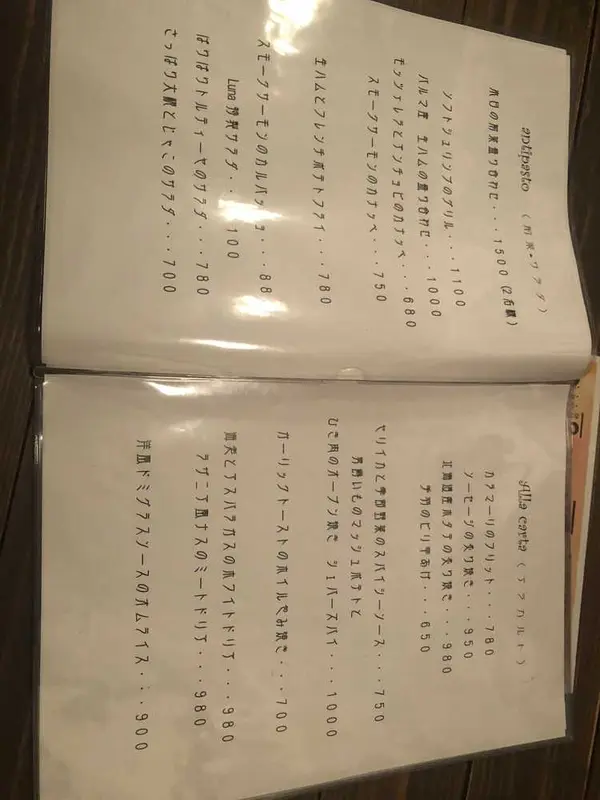 antipasto (前菜・サラダ)
本日の前菜盛り合わせ・・・1500(2名様)
ソフトシュリンプのグリル・・・1100
パルマ産 生ハムの盛り合わせ・・・1000
モッツァレラとアンチョビのカナッペ・・・680
スモークサーモンのカナッペ・・・750
生ハムとフレンチポテトフライ・・・780
スモークサーモンのカルパッ
88
Luna 特製サラダ・・
100
ぱりぱりトルティーヤのサラダ・・・780
さっぱり大根とじゃこのサラダ・・・700
Alla carta (アラカルト)
カラマーリのフリット・・・780
ソーセージの炙り焼き・・・950
北海道産ホタテの炙り焼き・・・980
手羽のピリ辛あげ・・・650
ヤリイカと季節野菜のスパイシーソース・・・750
男爵いものマッシュポテトと
ひき肉のオーブン焼き シェパーズパイ・・・1000
ガーリックトーストのホイル包み焼き・・・700
海老とアスパラガスのホワイトドリア・・・980
ラザニア風ナスのミートドリア・・・980
洋風ドミグラスソースのオムライス・・・900